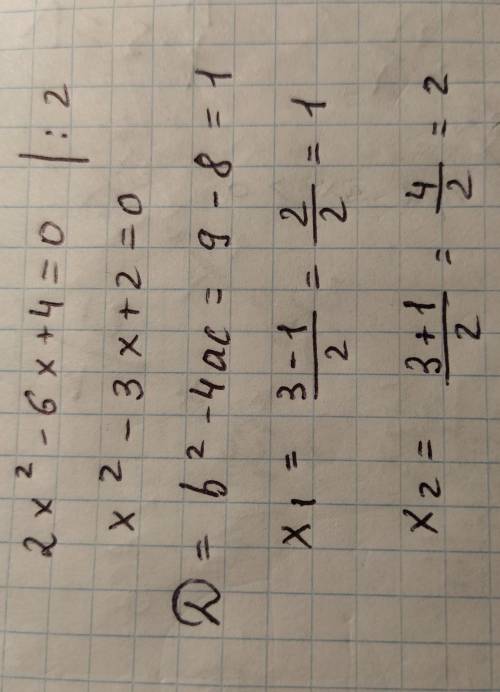 2x² - 6x + 4 = 0 | : 2
x² - 3x + 2 = 0
D = b² - 4ac = 9 - 8 = 1
x₁ = (3 - 1)/2 = 2/2 = 1
x₂ = (3 + 1)/2 = 4/2 = 2